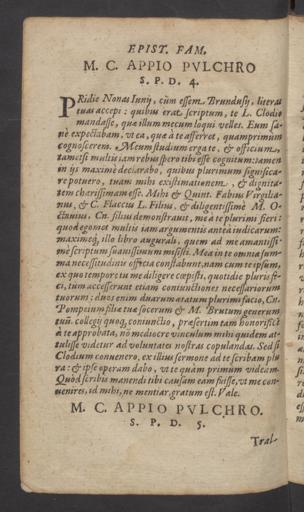 EPIST. FAM.
M. C. APPIO PVLCHRO
S. P. D. 4.
PRidie Nonas Iunij, cùm essem Brundusij, literas
tuas accepi: quibus erat scriptum, te L. Clodio
mandasse, quæ illum mecum loqui velles. Eum sa-
nè expectabam, vt ea, quæ à te afferret, quamprimùm
cognoscerem. Meum studium erga te, & officium,
tametsi multis iam rebus spero tibi esse cognitum: tamen
in ijs maximè declarabo, quibus plurimum significa-
re potuero, tuam mihi existimationem, & dignita-
tem charissimam esse. Mihi & Quint. Fabius Virgilia-
nus, & C. Flaccus L. Filius, & diligentissimè M. O-
ctauius, Cn. filius demonstrauit, me à te plurimi fieri:
quod egomet multis iam argumentis antea iudicaram:
maximeq́; illo libro augurali, quem ad me amantissi-
mè scriptum suauissimum misisti. Mea in te omnia sum-
ma necessitudinis officia constabunt. nam cum te ipsum,
ex quo tempore tu me diligere cœpisti, quotidie pluris fe-
ci, tum accesserunt etiam coniunctiones necessariorum
tuorum: duos enim duarum ætatum plurimi facio, Cn.
Pompeium filiæ tuæ socerum & M. Brutum generum
tuũ. collegij quoq, coniunctio, præsertim tam honorificè
à te approbata, nõ mediocre vinculum mihi quidem at-
tulisse videtur ad voluntates nostras copulandas. Sed si
Clodium conuenero, ex illius sermone ad te scribam plu
ra: & ipse operam dabo, vt te quàm primùm videam.
Quòd scribis manendi tibi causam eam fuisse, vt me con-
uenires, id mihi, ne mentiar, gratum est. Vale.
M. C. APPIO PVLCHRO.
S. P. D. 5.
Tral-